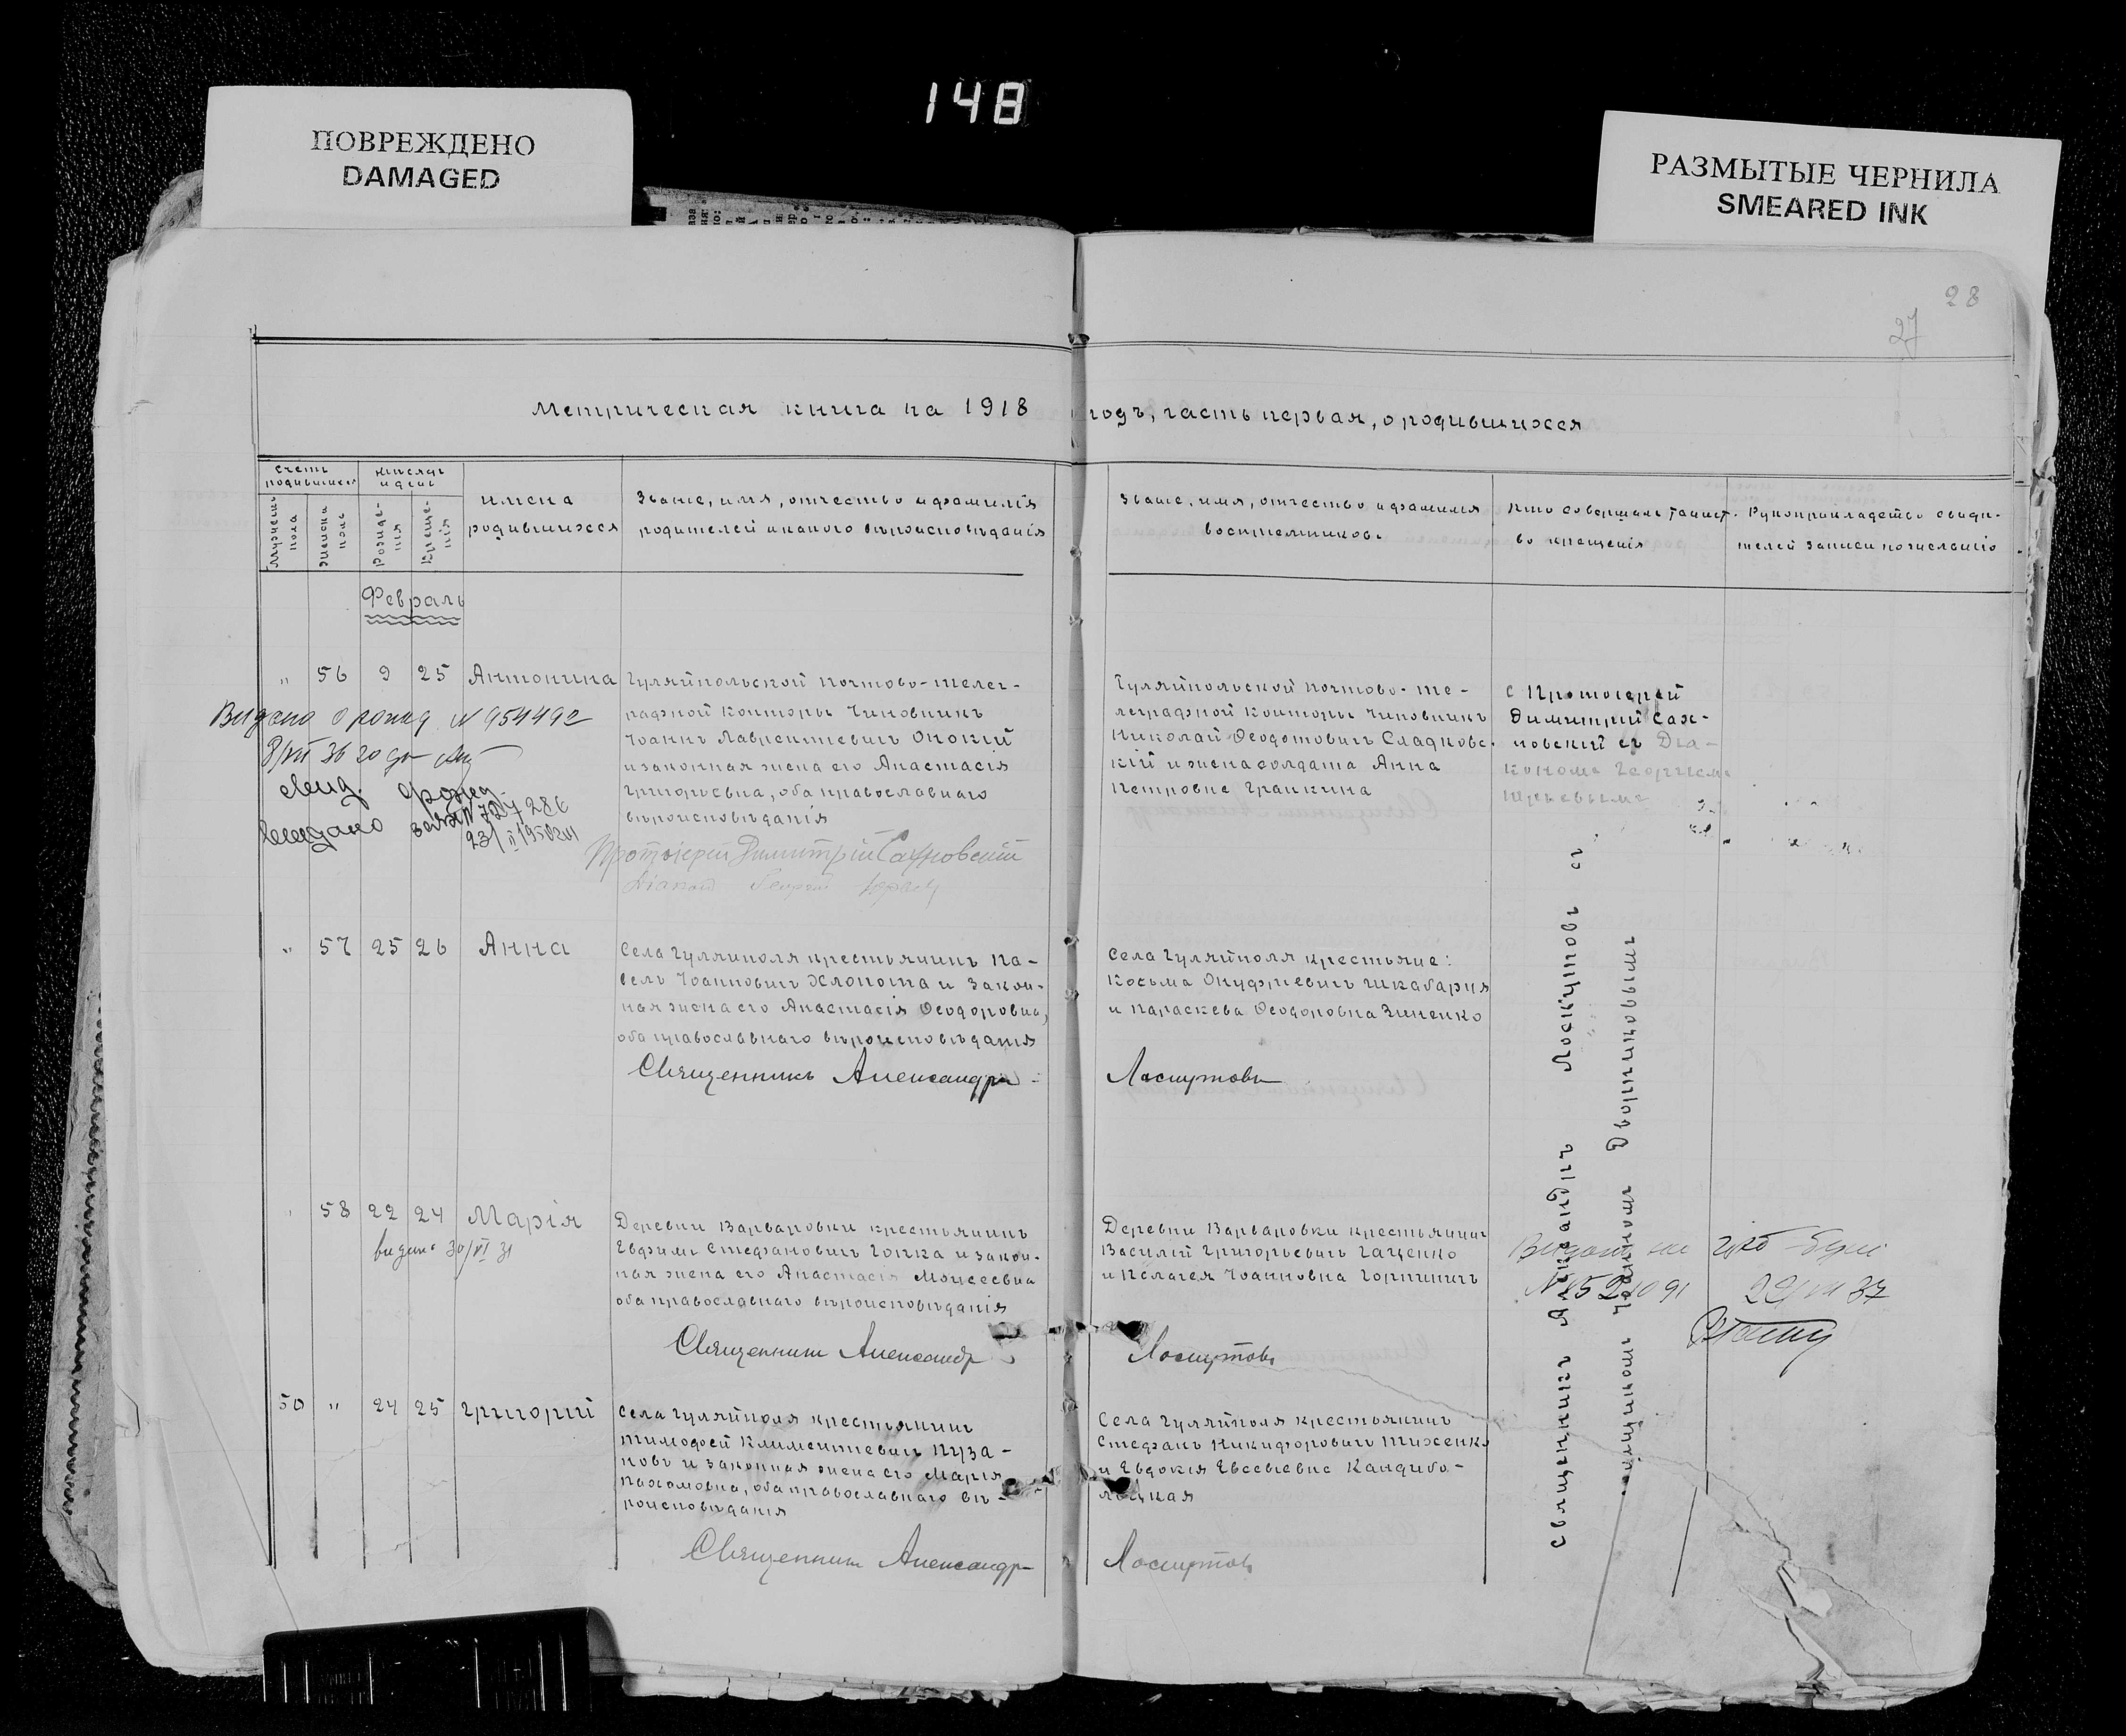 148
ПОВРЕЖДЕНО
DAMAGED
РАЗМЫТЫЕ ЧЕРНИЛА
SMEARED INK
28
27
Метрическая книга на 1918 годъ, часть первая, о родившихся
Счетъ родившихся
Мѣсяцъ и день
Мужеска пола
Женска пола
Рожде-
нія
Креще-
нія
Имена
родившихся
Званіе, имя, отчество и фамилія
родителей и какого вѣроисповѣданія
Званіе, имя, отчество и фамилія
воспріемниковъ
Кто совершалъ таинст-
во крещенія
Рукоприкладство свидѣ-
телей записи по желанію
Февраль
" 56 9 25 Антонина
Гуляйпольской почтово-телег-
рафной конторы чиновникъ
Іоаннъ Лаврентіевичъ Онокій
и законная жена его Анастасія
Григорьевна, оба православнаго
вѣроисповѣданія
Протоіерей Димитрій Сахновскій
Діаконъ Георгій
Гуляйпольской почтово-те-
леграфной конторы чиновникъ
Николай Ѳеодотовичъ Сладковс-
кій и жена солдата Анна
Петровна Гранкина
Протоіерей
Димитрій Сах-
новскій съ Діа-
кономъ Георгіемъ
Видано о рожд. N 954492
8/VII 36 года
23/II 1950
" 57 25 26 Анна
Села Гуляйполя крестьянинъ Па-
велъ Іоанновичъ Хлопота и закон-
ная жена его Анастасія Ѳеодоровна,
оба православнаго вѣроисповѣданія
Священникъ Александръ Лоскутовъ
Села Гуляйполя крестьяне:
Косьма Онуфріевичъ Шкабарня
и Параскева Ѳеодоровна Зиненко
" 58 22 24 Марія
видано 30/VI 31
Деревни Варваровки крестьянинъ
Евфимъ Стефановичъ Гопка и закон-
ная жена его Анастасія Моисеевна
оба православнаго вѣроисповѣданія
Священникъ Александръ Лоскутовъ
Деревни Варваровки крестьянинъ
Василій Григорьевичъ Гаценко
и Пелагея Іоанновна Горпиничъ
22/VII 37
50 " 24 25 Григорій
Села Гуляйполя крестьянинъ
Тимофей Климентіевичъ Пуза-
новъ и законная жена его Марія
Пахомовна, оба православнаго вѣ-
роисповѣданія
Священникъ Александръ Лоскутовъ
Села Гуляйполя крестьянинъ
Стефанъ Никифоровичъ Тихенко
и Евдокія Евсевіевна
Священникъ Александръ Лоскутовъ съ
Дворниковымъ